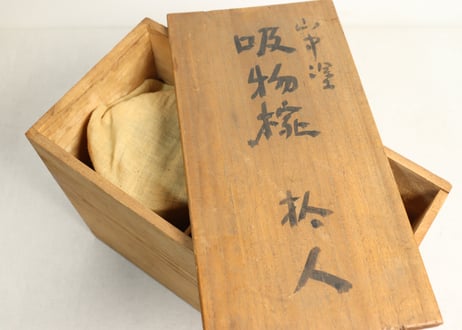 山中塗
吸物椀
拾人